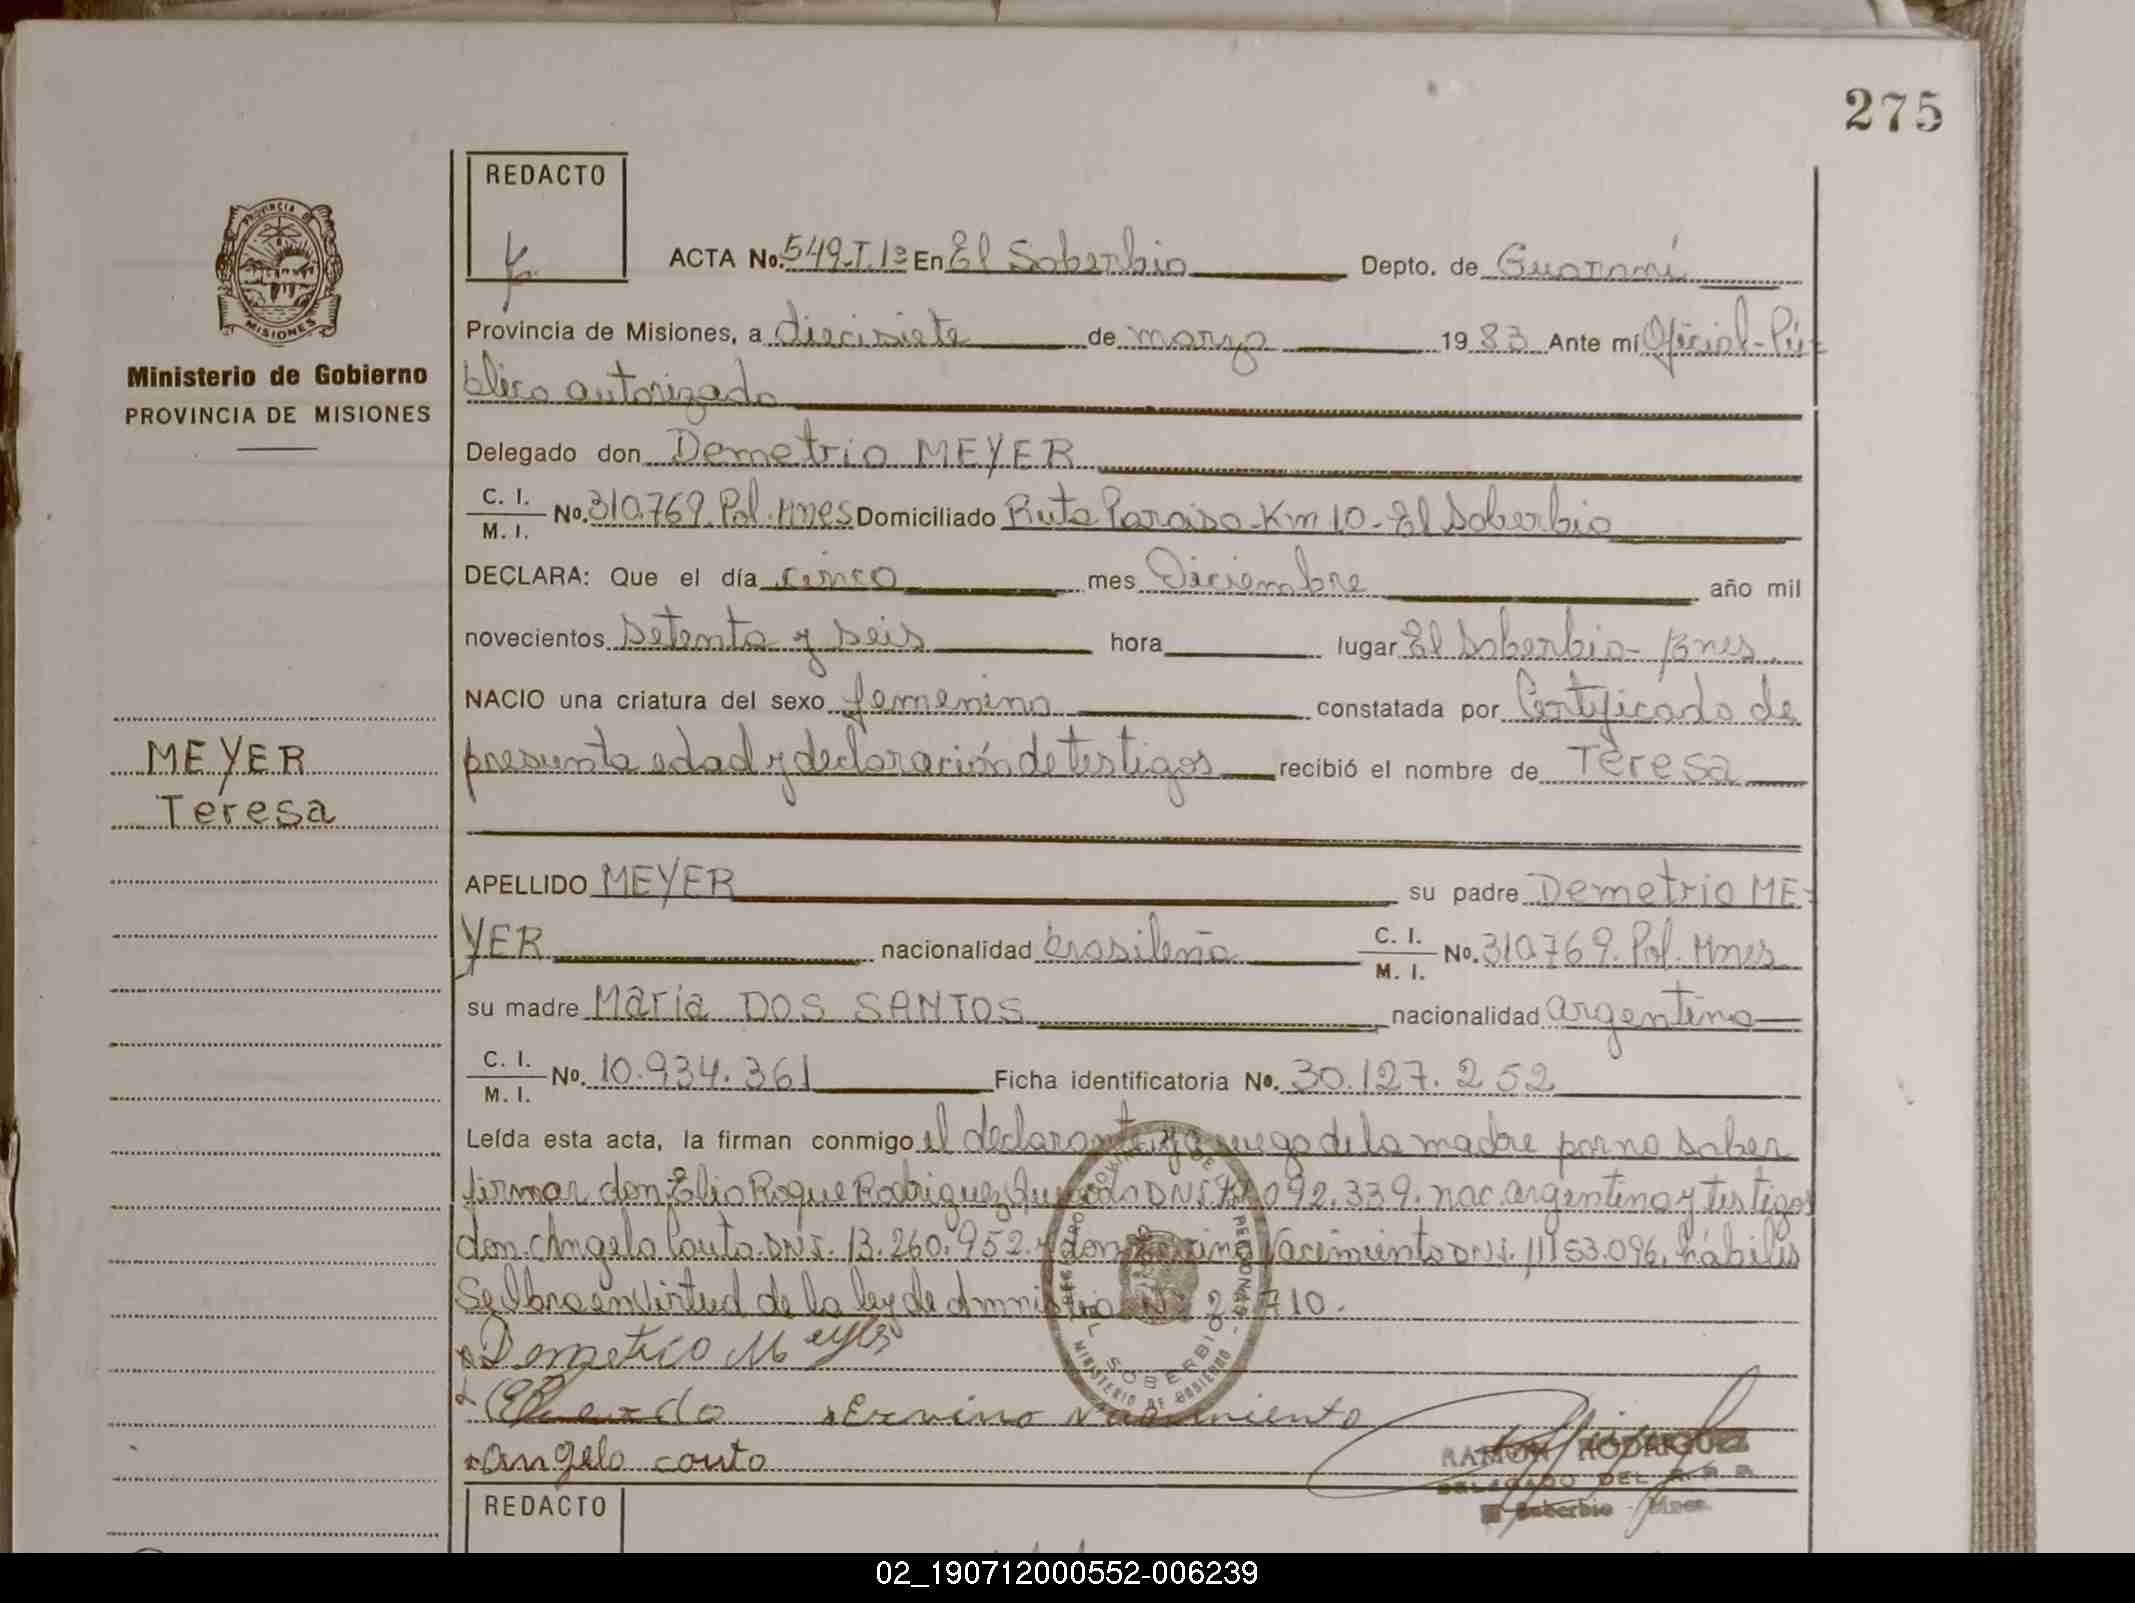 275
REDACTO
ACTA No. 549-T.1º En El Soberbio Depto. de Guaraní
Provincia de Misiones, a diecisiete de marzo 1983 Ante mí Oficial-Pú-
blico autorizado
Ministerio de Gobierno
PROVINCIA DE MISIONES
Delegado don Demetrio MEYER
C. I.
M. I. No. 310.769. Pol. Mnes Domiciliado Ruta Paraiso-Km 10-El Soberbio
DECLARA: Que el día cinco mes Diciembre año mil
novecientos Setenta y seis hora lugar El Soberbio-Mnes.
NACIO una criatura del sexo femenino constatada por Certificado de
presunta edad y declaración de testigos recibió el nombre de Teresa
MEYER
Teresa
APELLIDO MEYER su padre Demetrio ME-
YER nacionalidad brasileña C. I.
M. I. No. 310.769. Pol. Mnes
su madre Maria DOS SANTOS nacionalidad argentina
C. I.
M. I. No. 10.934.361 Ficha identificatoria No. 30.127.252
Leída esta acta, la firman conmigo el declarante y a ruego de la madre por no saber
firmar don Elio Roque Rodriguez DNI 092.339. nac. argentino y testigos
don Angelo Couto DNI. 13.260.952. y don Nacimiento DNI. 11153.096, hábiles
Se labra en virtud de la ley de Amnistia Nº 710.
Demetrio Meyer
Ervino Nacimiento
Angelo couto
EL SOBERBIO
MINISTERIO DE GOBIERNO
RAMON RODRIGUEZ
DELEGADO DEL
El Soberbio - Mnes.
REDACTO
02_190712000552-006239